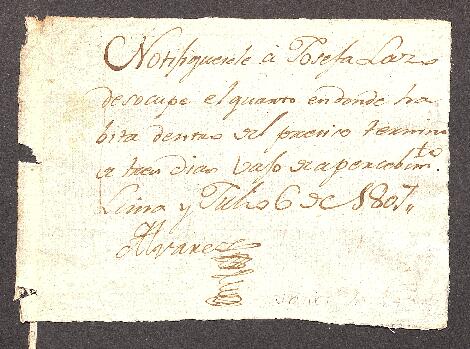 Notifiquesele à Josefa Lazo
desocupe el quarto en donde ha
bita dentro del preciso termino
de tres dias vajo de apercebim.to
Lima y Julio 6 de 1807,,
Alvarez